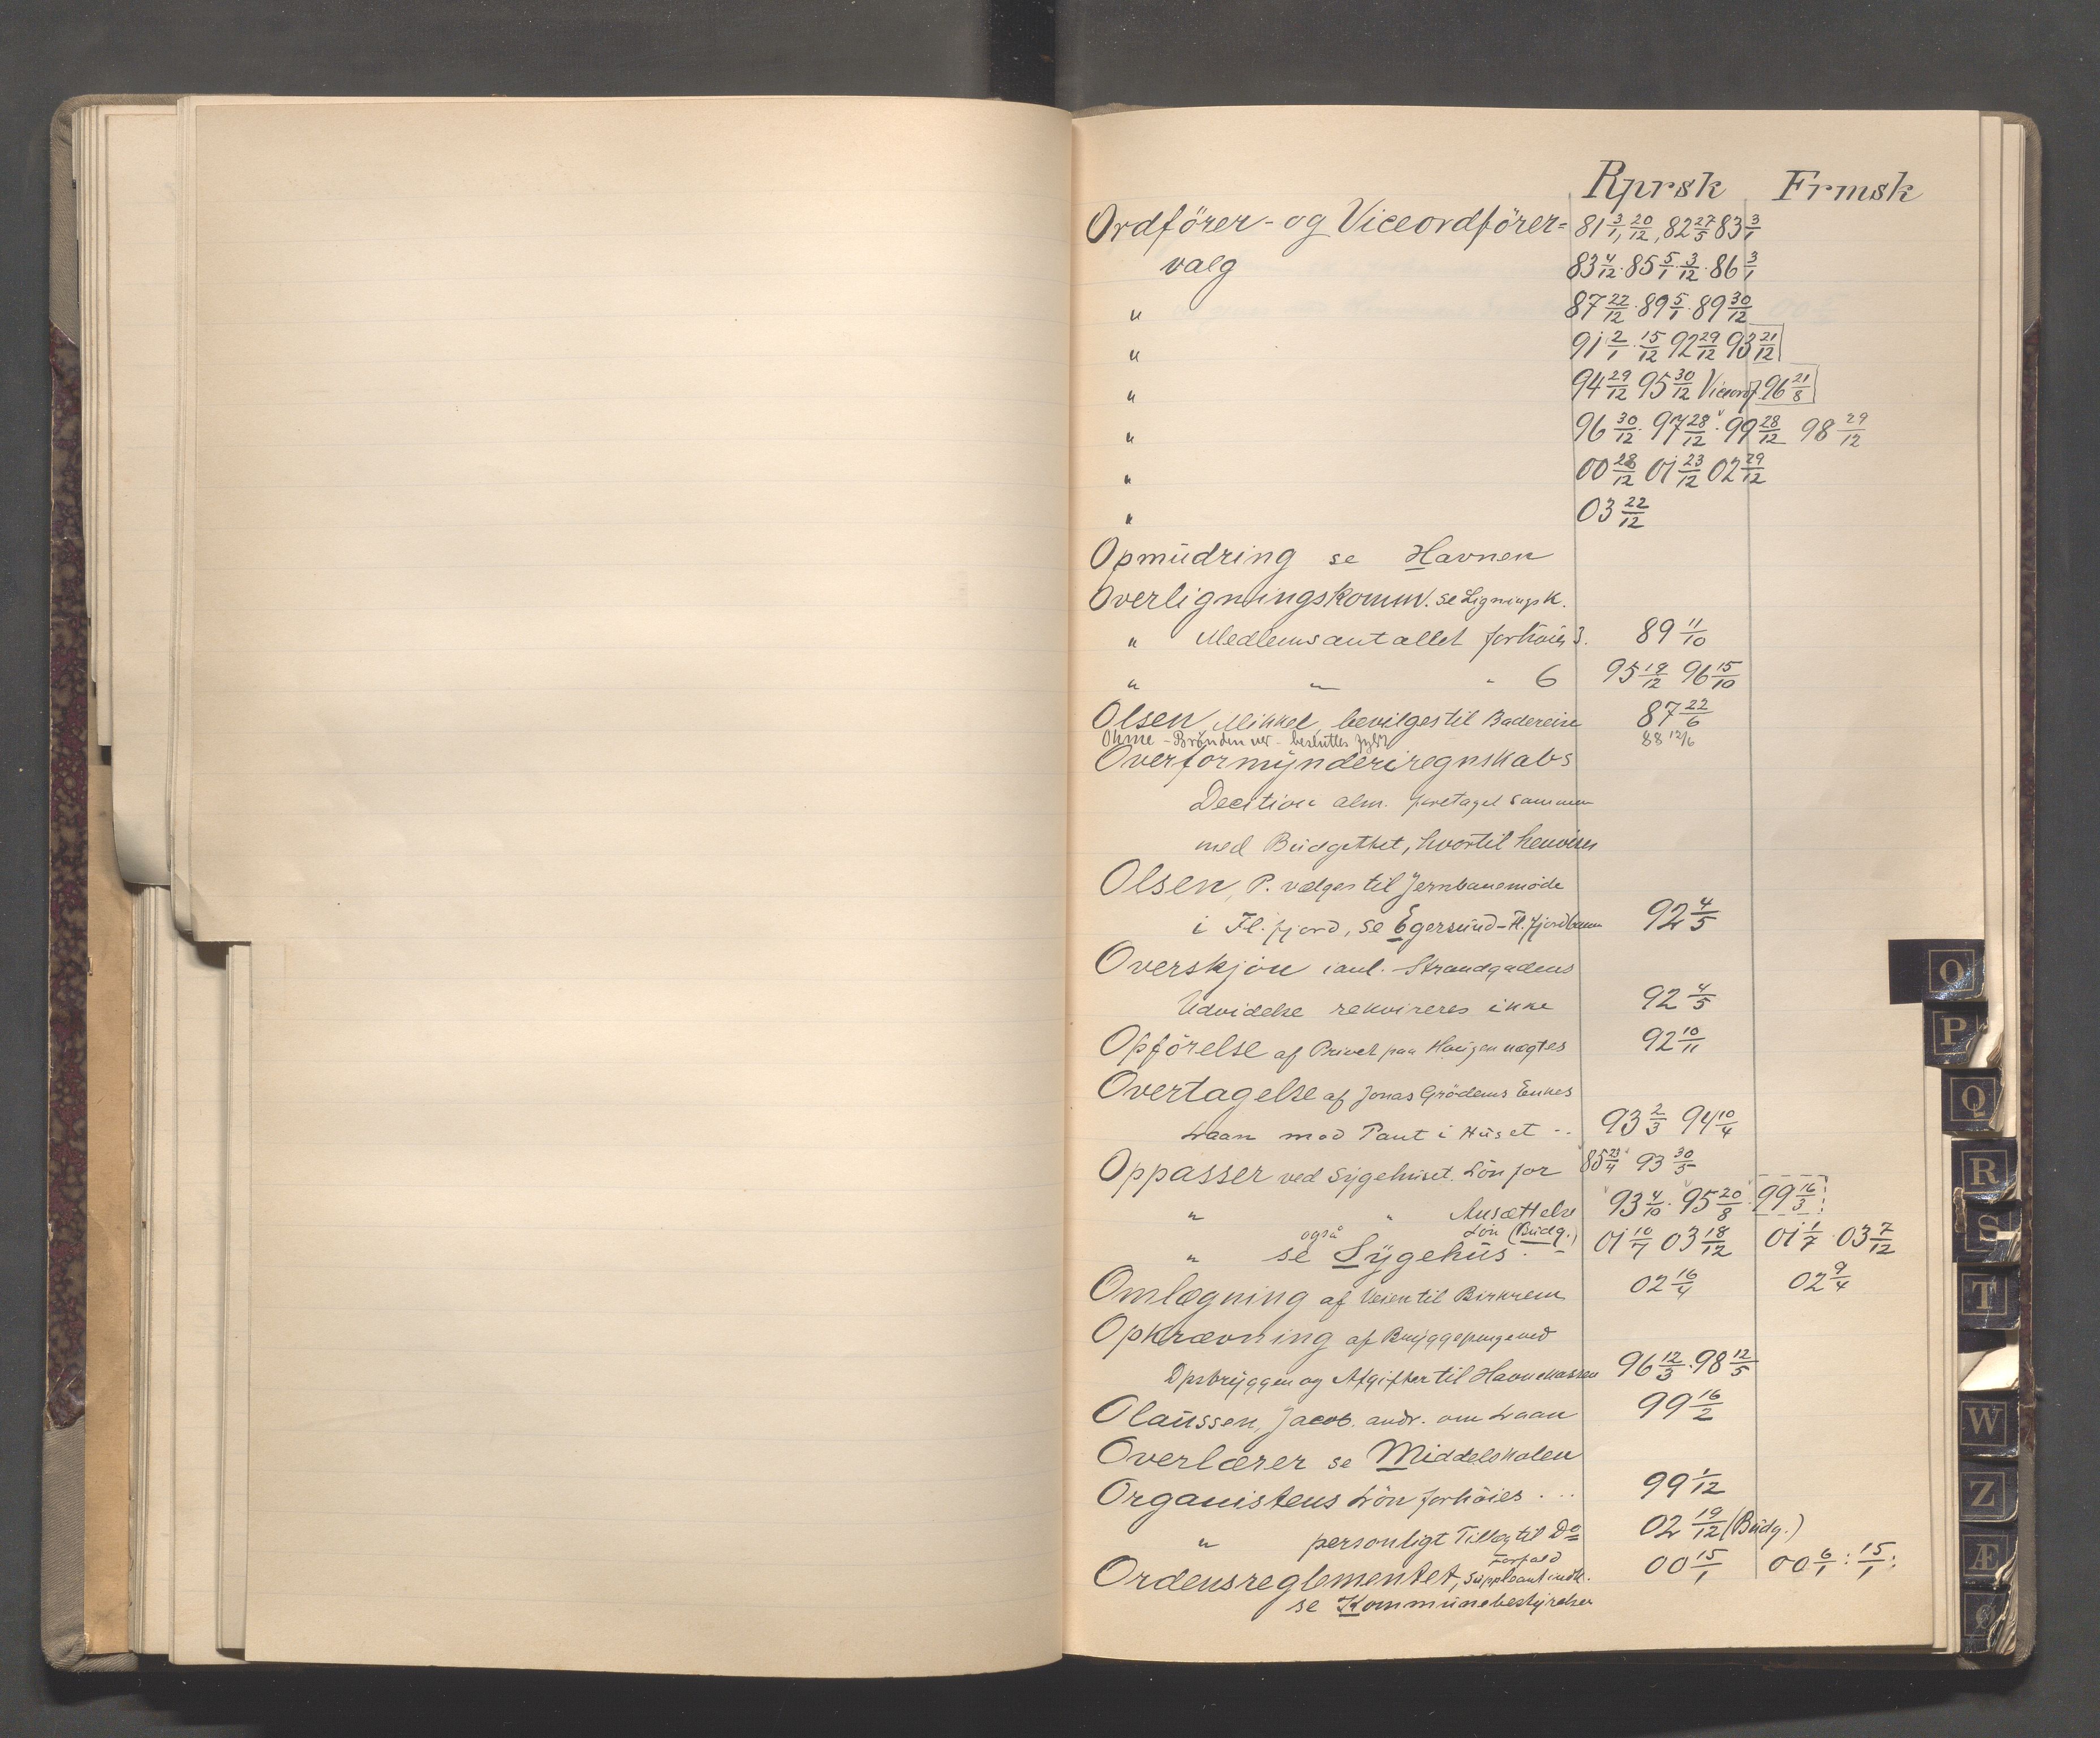 Rprsk Frmsk
Ordförer- og Viceordförer= 81 3/1, 20/12, 82 27/5 83 3/1
valg 83 4/12 · 85 5/1 · 3/12 · 86 3/1
" 87 22/12 · 89 5/1 · 89 30/12
" 91 2/1 · 15/12 92 29/12 93 21/12
" 94 29/12 95 30/12 Viceordf. 96 21/8
" 96 30/12 · 97 28/12 · 99 28/12 98 29/12
" 00 28/12 01 23/12 02 29/12
" 03 22/12
Opmudring se Havnen
Overligningskomm. se Lignings K.
" Medlemsantallet forhöies 3. 89 11/10
" " " 6 95 19/12 96 15/10
Olsen, Mikkel, bevilges til Badereise 87 22/6
Ohme - Brönden ved - besluttes 88 12/6
Overformynderiregnskabs
Decision alm. foretaget sammen
med Budgettet, hvortil henvises
Olsen, P. vælges til Jernbanemöde
i Fl. fjord, se Egersund-Fl. fjordbanen 92 4/5
Overskjön i anl. Strandgadens
Udvidelse rekvireres ikke 92 4/5
Opförelse af Privet paa Haugen nægtes 92 10/11
Overtagelse af Jonas Grödems Enkes
Laan mod Pant i Huset .. 93 2/3 94 10/4
Oppasser ved Sygehuset. Lön for 85 23/4 93 30/5
" " Ansættelse 93 4/10 · 95 20/8 · 99 16/3
også Lön (Budg.)
" se Sygehus · 01 10/7 03 18/12 01 1/7 03 7/12
Omlægning af Veien til Birkrem 02 16/4 02 9/4
Opkrævning af Bryggepenge ved
Dpsbryggen og Afgifter til Havnekassen 96 12/3 · 98 12/5
Olaussen, Jacob. andr. om Laan 99 16/2
Overlærer se Middelskolen
Organistens Lön forhöies · .. 99 1/12
" personligt Tillæg til Do 02 19/12 (Budg.)
Forfald
Ordensreglementet, Suppleant indk. 00 15/1 00 6/1 : 15/1 :
se Kommunebestyrelsen
O
P
Q
R
S
T
W
Z
Æ
Ø